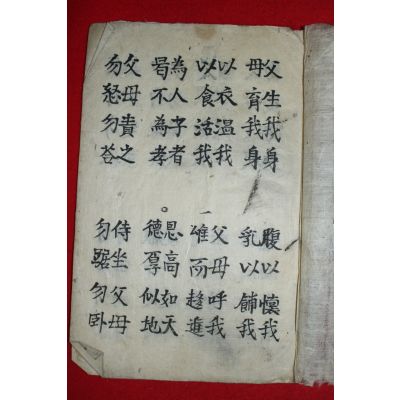 父生我身
母育我身
腹以懷我
乳以餔我
以衣溫我
以食活我
父母呼我
而趍進
為人子者
曷不為孝
恩高如天
德厚似地
父母責之
勿怒勿荅
侍坐父母
勿踞勿臥